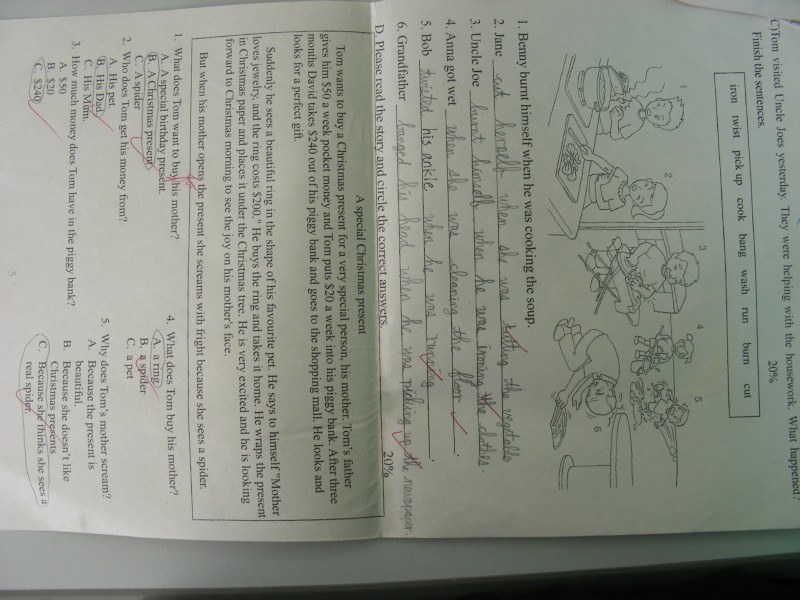 C)Tom visited Uncle Joes yesterday. They were helping with the housework. What happened?
Finish the sentences. 20%
iron twist pick up cook bang wash run burn cut
1 2 3 4 5 6
1. Benny burnt himself when he was cooking the soup.
2. Jane cut herself when she was the vegetable
3. Uncle Joe burnt himself when he was ironing the clothes.
4. Anna got wet when she was cleaning the floor.
5. Bob twisted his ankle when he was running.
6. Grandfather banged his head when he was picking up the newspaper.
D. Please read the story and circle the correct answers. 20%
A special Christmas present
Tom wants to buy a Christmas present for a very special person, his mother. Tom's father
gives him $50 a week pocket money and Tom puts $20 a week into his piggy bank. After three
months David takes $240 out of his piggy bank and goes to the shopping mall. He looks and
looks for a perfect gift.
Suddenly he sees a beautiful ring in the shape of his favourite pet. He says to himself "Mother
loves jewelry, and the ring costs $200." He buys the ring and takes it home. He wraps the present
in Christmas paper and places it under the Christmas tree. He is very excited and he is looking
forward to Christmas morning to see the joy on his mother's face.
But when his mother opens the present she screams with fright because she sees a spider.
1. What does Tom want to buy his mother?
for
A. A special birthday present.
B. A Christmas present
C. A spider
2. Who does Tom get his money from?
A. His pet
B. His Dad
C. His Mum.
3. How much money does Tom have in the piggy bank?
A. $50
B. $20
C. $240
4. What does Tom buy his mother?
A. a ring
B. a spider
C. a pet
5. Why does Tom's mother scream?
A. Because the present is
beautiful.
B. Because she doesn't like
Christmas presents
C. Because she thinks she sees a
real spider.
3